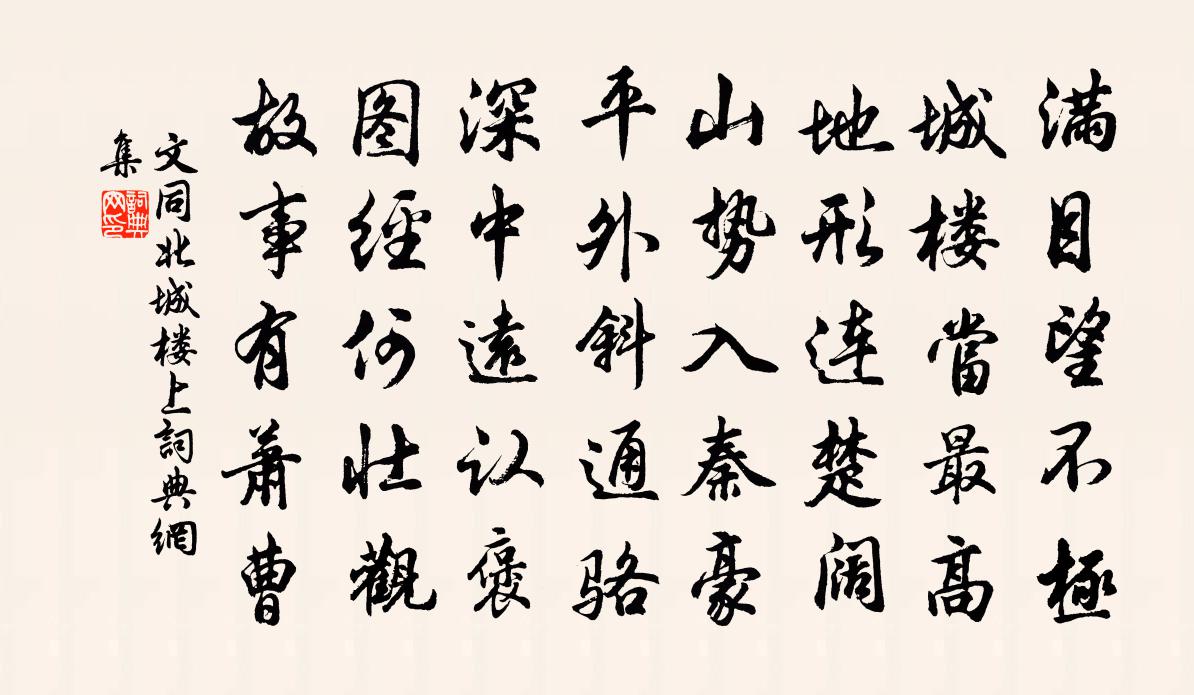 满目望不極
城楼當最高
地形连楚阔
山势入秦豪
平外斜通骆
深中遠认褒
图經何壮觀
故事有蕭曹
文同北城楼上詞典網
集
詞典
网印